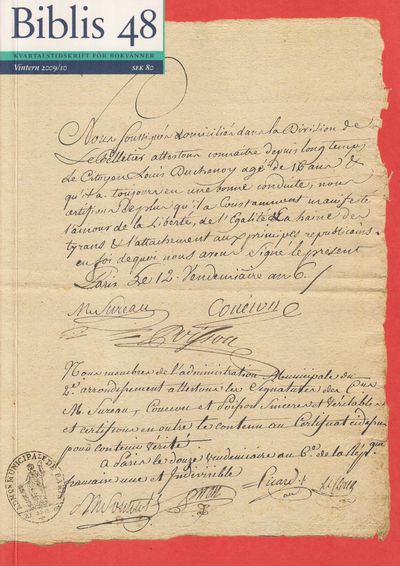 Biblis 48
KVARTALSTIDSKRIFT FÖR BOKVÄNNER
Vintern 2009/10
SEK 80
Nous soussignés domiciliés dans la Division de
Lepelletier attestons connaitre depuis long temps
Le Citoyen Louis Duchenoy agé de 16 ans &
qu'il a toujours eu une bonne conduite, nous
certifions de plus qu'il a Constamment manifesté
l'amour de la Liberté, de l'Egalité & la haine des
tyrans & l'attachement aux principes republicains
en foi de quoi nous avons Signé le present
Paris Le 12. Vendemiaire an 6
M Sureau Couevou
Poisson
Nous membres de l'administration Municipale du
2e. arrondissement attestons les Signatures des Cens
M. Sureau, Couevou et Poisson Sinceres et Véritables
et certifions en outre le contenu au Certificat
pour contenir Vérité.
à Paris le douze Vendemiaire an 6e. de la Repque.
française une et Indivisible
Picard